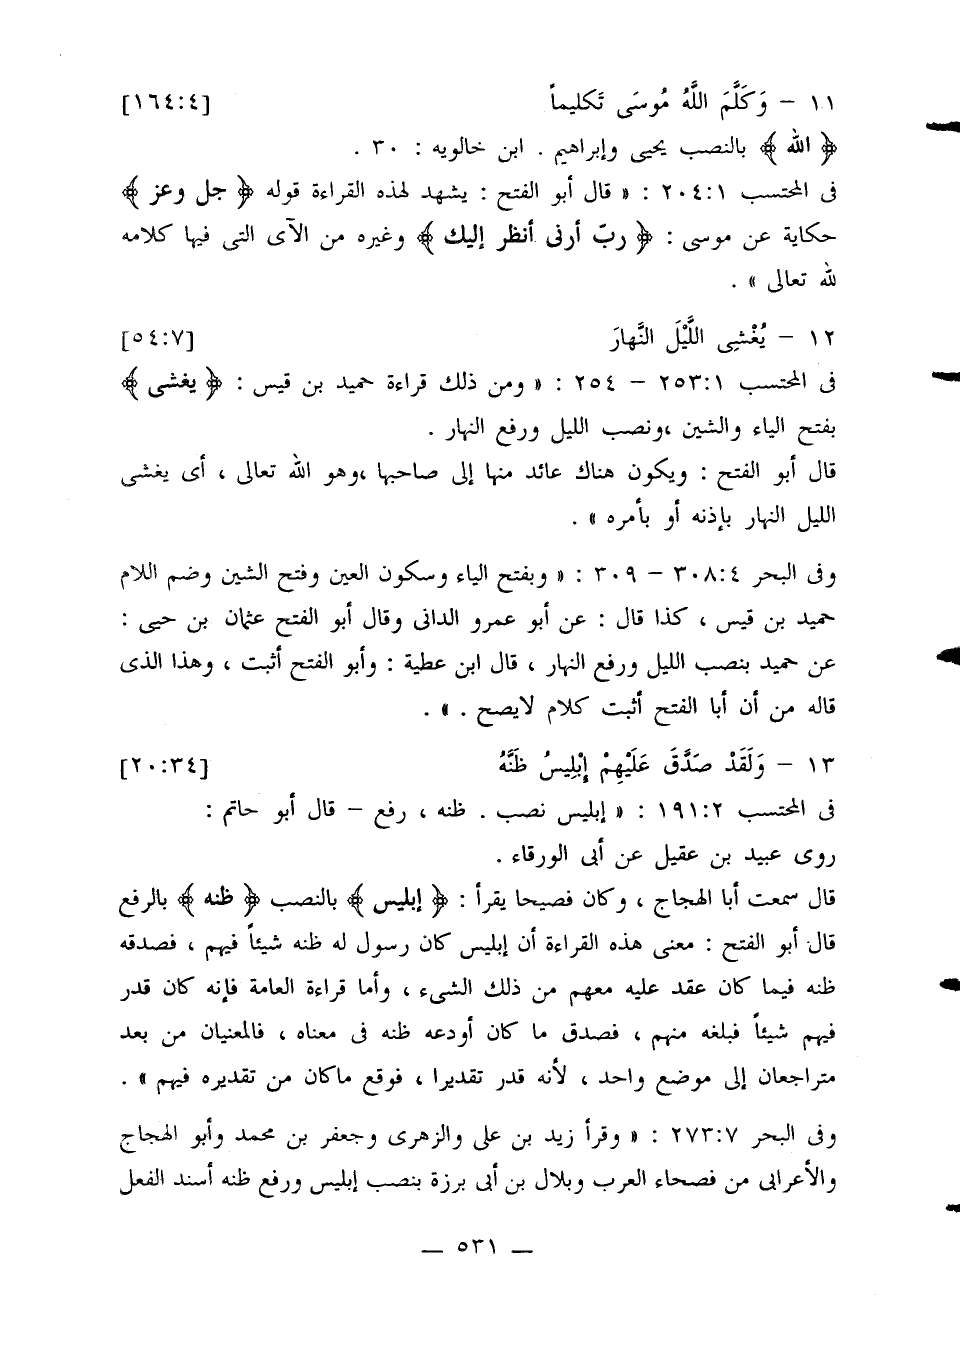 ١١ – وَكَلَّمَ اللَّهُ مُوسَى تَكليماً [١٦٤:٤]
﴿ الله ﴾ بالنصب يحيى وإبراهيم . ابن خالويه : ٣٠ .
فى المحتسب ٢٠٤:١ : « قال أبو الفتح : يشهد لهذه القراءة قوله ﴿ جل وعز ﴾
حكاية عن موسى : ﴿ ربّ أرنى أنظر إليك ﴾ وغيره من الآى التى فيها كلامه
لله تعالى » .
١٢ – يُغْشِى اللَّيْلَ النَّهارَ [٥٤:٧]
فى المحتسب ٢٥٣:١ – ٢٥٤ : « ومن ذلك قراءة حميد بن قيس : ﴿ يغشى ﴾
بفتح الياء والشين ،ونصب الليل ورفع النهار .
قال أبو الفتح : ويكون هناك عائد منها إلى صاحبها ،وهو الله تعالى ، أى يغشى
الليل النهار بإذنه أو بأمره » .
وفى البحر ٣٠٨:٤ – ٣٠٩ : « وبفتح الياء وسكون العين وفتح الشين وضم اللام
حميد بن قيس ، كذا قال : عن أبو عمرو الدانى وقال أبو الفتح عثمان بن حيى :
عن حميد بنصب الليل ورفع النهار ، قال ابن عطية : وأبو الفتح أثبت ، وهذا الذى
قاله من أن أبا الفتح أثبت كلام لايصح . » .
١٣ – وَلَقَدْ صَدَّقَ عَلَيْهِمْ إِبْلِيسُ ظَنَّهُ [٢٠:٣٤]
فى المحتسب ١٩١:٢ : « إبليس نصب . ظنه ، رفع – قال أبو حاتم :
روى عبيد بن عقيل عن أبى الورقاء .
قال سمعت أبا الهجاج ، وكان فصيحا يقرأ : ﴿ إبليس ﴾ بالنصب ﴿ ظنه ﴾ بالرفع
قال أبو الفتح : معنى هذه القراءة أن إبليس كان رسول له ظنه شيئاً فيهم ، فصدقه
ظنه فيما كان عقد عليه معهم من ذلك الشىء ، وأما قراءة العامة فإنه كان قدر
فيهم شيئاً فبلغه منهم ، فصدق ما كان أودعه ظنه فى معناه ، فالمعنيان من بعد
متراجعان إلى موضع واحد ، لأنه قدر تقديرا ، فوقع ماكان من تقديره فيهم » .
وفى البحر ٢٧٣:٧ : « وقرأ زيد بن على والزهرى وجعفر بن محمد وأبو الهجاج
والأعرابى من فصحاء العرب وبلال بن أبى برزة بنصب إبليس ورفع ظنه أسند الفعل
— ٥٣١ —